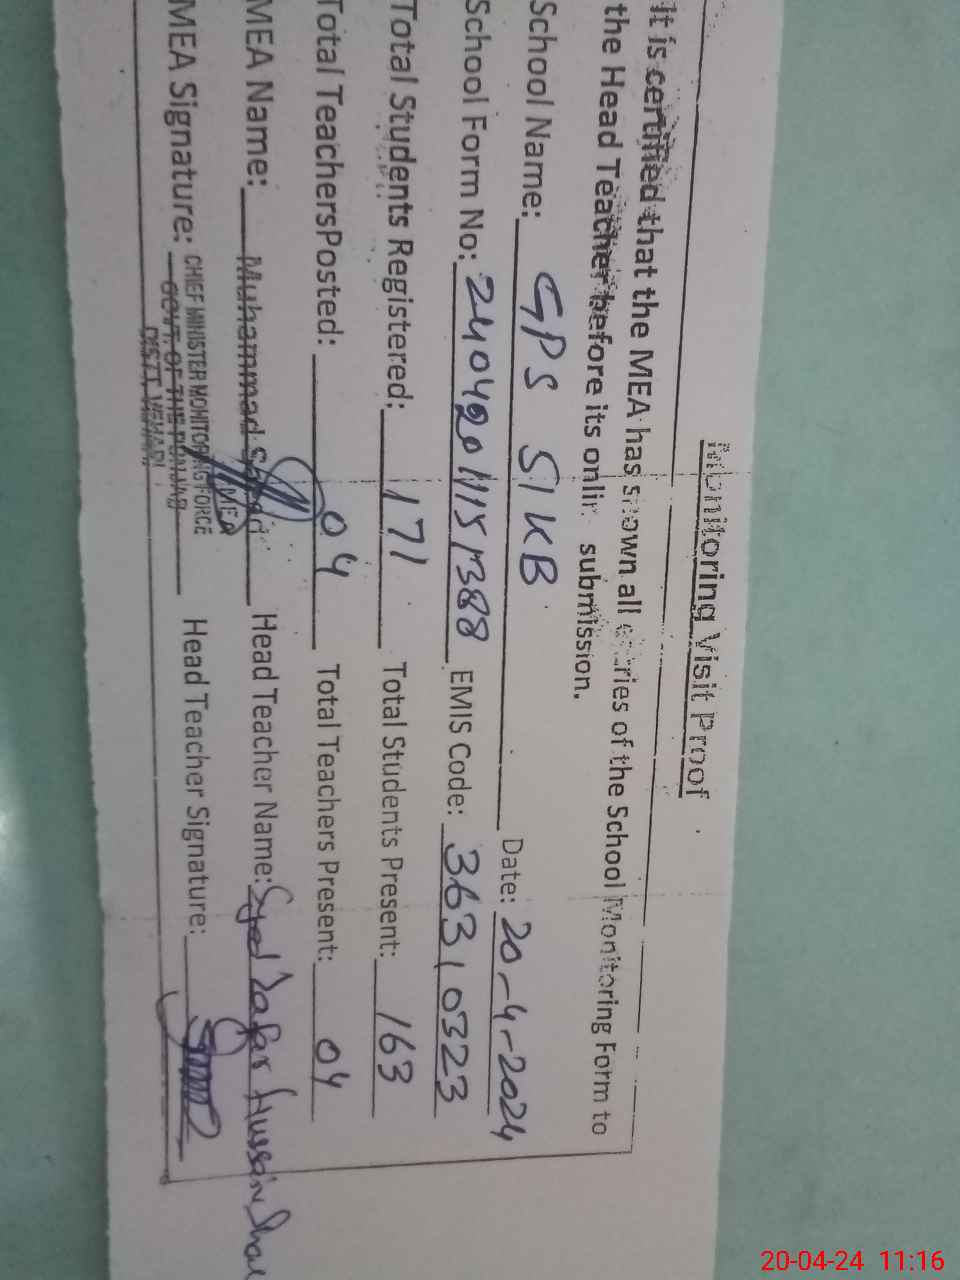 Monitoring Visit Proof
It is certified that the MEA has shown all entries of the School Monitoring Form to
the Head Teacher before its online submission.
School Name: GPS SIKB Date: 20-4-2024
School Form No: EMIS Code: 36310323
Total Students Registered: 171 Total Students Present: 163
Total TeachersPosted: 04 Total Teachers Present: 04
MEA Name: Muhammad Head Teacher Name: Syed Zafar Hussain Shah
MEA Signature: Head Teacher Signature:
CHIEF MINISTER MONITORING FORCE
GOVT. OF THE PUNJAB
DISTT. VEHARI
MEA
20-04-24 11:16